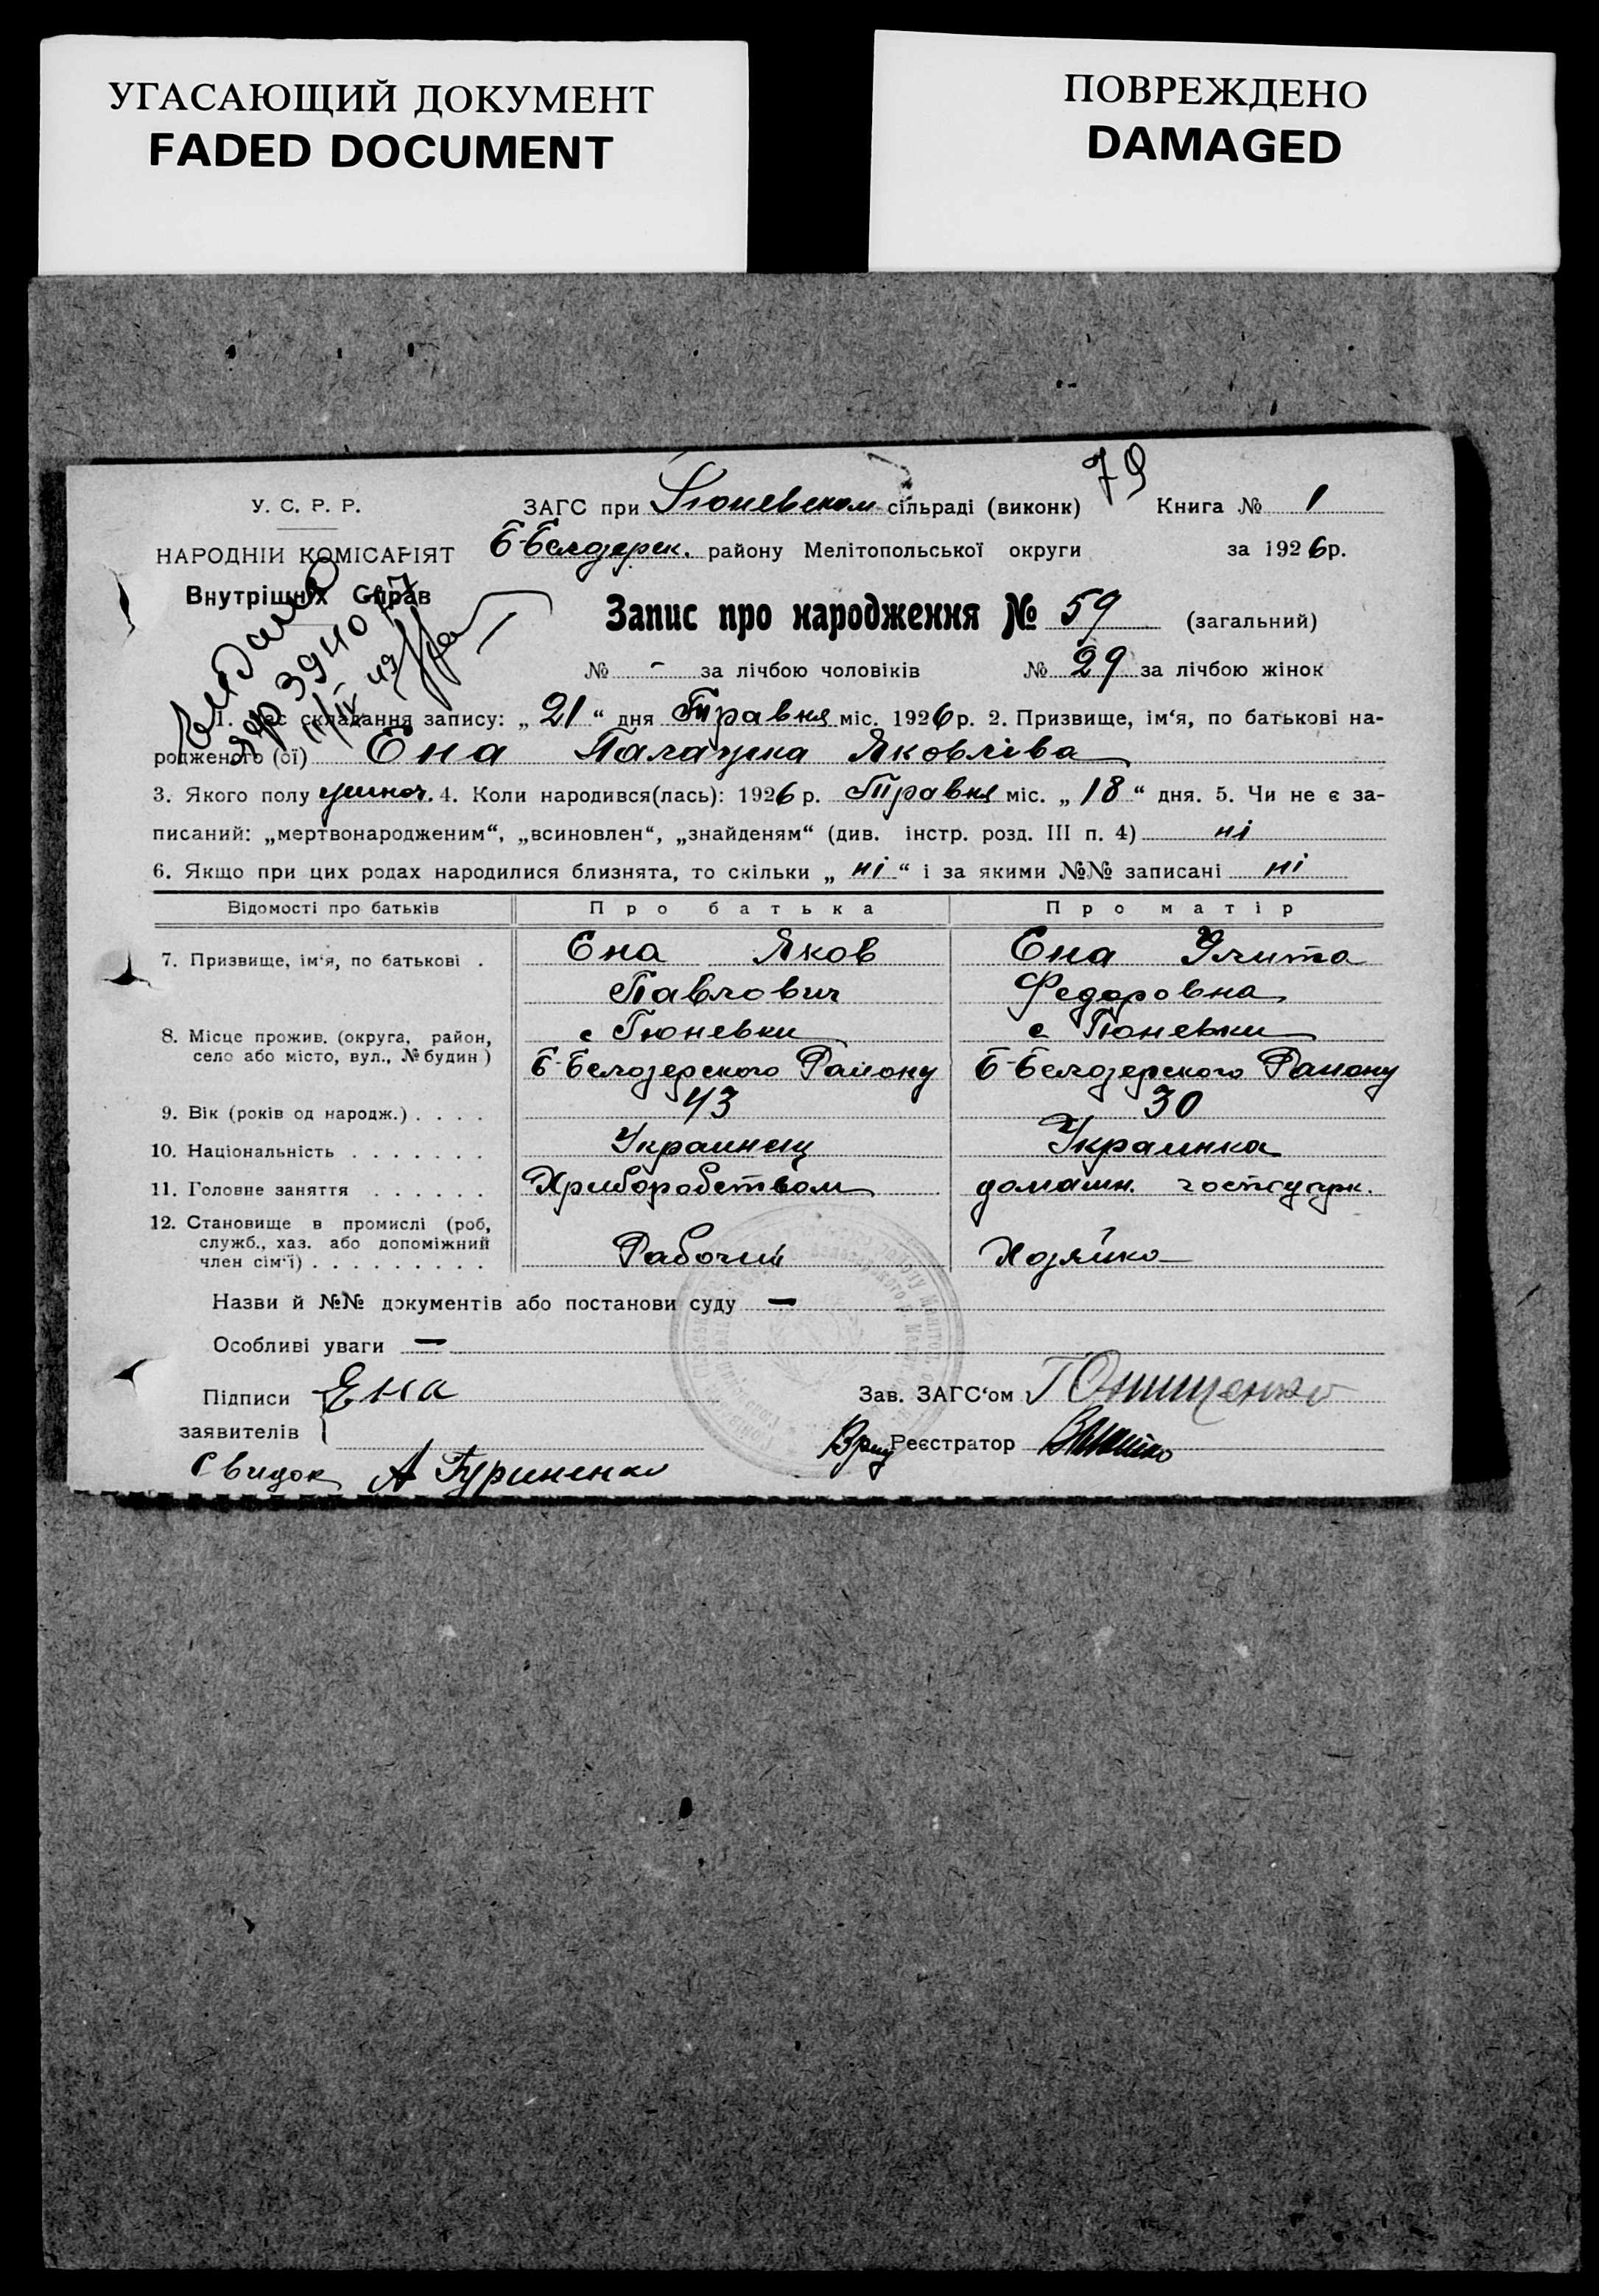 УГАСАЮЩИЙ ДОКУМЕНТ
FADED DOCUMENT
ПОВРЕЖДЕНО
DAMAGED
79
У. С. Р. Р.
ЗАГС при Гюневском сільраді (виконк)
Книга № 1
НАРОДНІЙ КОМІСАРІЯТ
Б-Белозерск. району Мелітопольської округи
за 1926р.
Внутрішніх Справ
Запис про народження № 59 (загальний)
№ - за лічбою чоловіків № 29 за лічбою жінок
1. Час складання запису: „ 21 “ дня Травня міс. 1926 р. 2. Призвище, ім‘я, по батькові на-
родженого (ої) Ена Палажка Яковліва
3. Якого полу жиноч. 4. Коли народився(лась): 1926 р. Травня міс. „ 18 “ дня. 5. Чи не є за-
писаний: „мертвонародженим“, „всиновлен“, „знайденям“ (див. інстр. розд. III п. 4) ні
6. Якщо при цих родах народилися близнята, то скільки „ ні “ і за якими №№ записані ні
Відомості про батьків Про батька Про матір
7. Призвище, ім‘я, по батькові . Ена Яков Ена Улита
Павлович Федоровна
8. Місце прожив. (округа, район, с Гюневки с Гюневки
село або місто, вул., № будин) Б-Белозерского Району Б-Белозерского Району
9. Вік (років од народж.) . . . . 43 30
10. Національність . . . . . . . Украинец Украинка
11. Головне заняття . . . . . . Хлиборобством домашн.
12. Становище в промислі (роб,
служб., хаз. або допоміжний Рабочий Хозяйка
член сім‘ї) . . . . . . . . .
Назви й №№ документів або постанови суду —
Особливі уваги —
Підписи Ена
Зав. ЗАГС‘ом Г Онищенко
заявителів
Врид Реєстратор
Свидок А Гуриненко